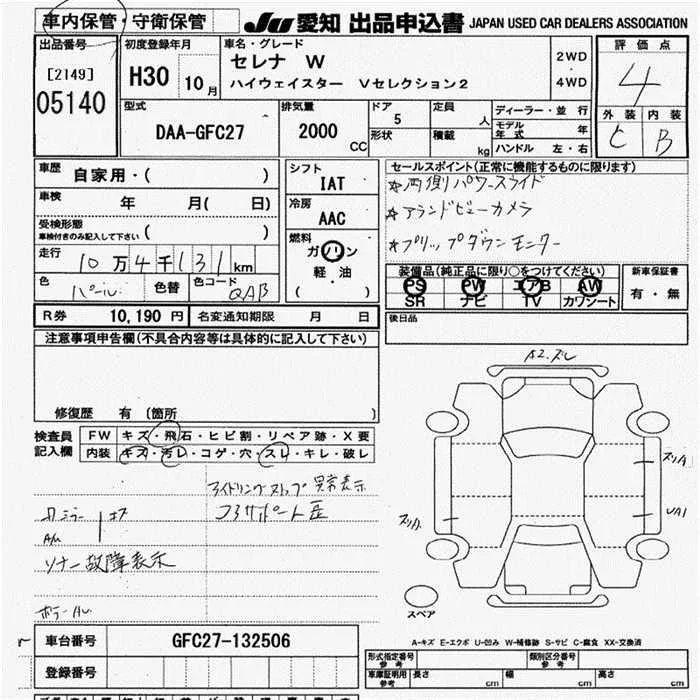 車内保管・守衛保管
JU 愛知 出品申込書 JAPAN USED CAR DEALERS ASSOCIATION
出品番号
[2149]
05140
初度登録年月
H30 10月
車名・グレード
セレナ W
ハイウェイスター Vセレクション2
2WD
・
4WD
評価点
4
外装 内装
C B
型式
DAA-GFC27
排気量
2000 CC
ドア 5
形状
定員 人
積載 kg
ディーラー・並行
モデル年式 年
ハンドル 左・右
車歴 自家用・( )
車検 年 月( 日)
受検形態
車検付きのみ記入して下さい ( )
走行 10万4千131km
色 パール 色替 色コード QAB
シフト
IAT
冷房
AAC
燃料
ガソリン
軽・油
( )
セールスポイント(正常に機能するものに限ります)
☆両側パワースライド
☆アラウンドビューカメラ
☆フリップダウンモニター
装備品(純正品に限り○をつけてください)
PS PW エアB AW
SR ナビ TV カワシート
新車保証書
有・無
R券 10,190円 名変通知期限 月 日
後日品
注意事項申告欄(不具合内容等は具体的に記入して下さい)
修復歴 有 (箇所 )
検査員
記入欄
FW キズ・飛石・ヒビ割・リペア跡・X要
内装 キズ・汚レ・コゲ・穴・スレ・キレ・破レ
アイドリングストップ異常表示
コアサポート歪
ソナー故障表示
A2.ズレ
スリA
スリA
UA1
スペア
A-キズ E-エクボ U-凹み W-補修跡 S-サビ C-腐食 XX-交換済
車台番号 GFC27-132506
登録番号
形式指定番号
参考
類別区分番号
参考
車庫証明用
参考
長さ cm 幅 cm 高さ cm